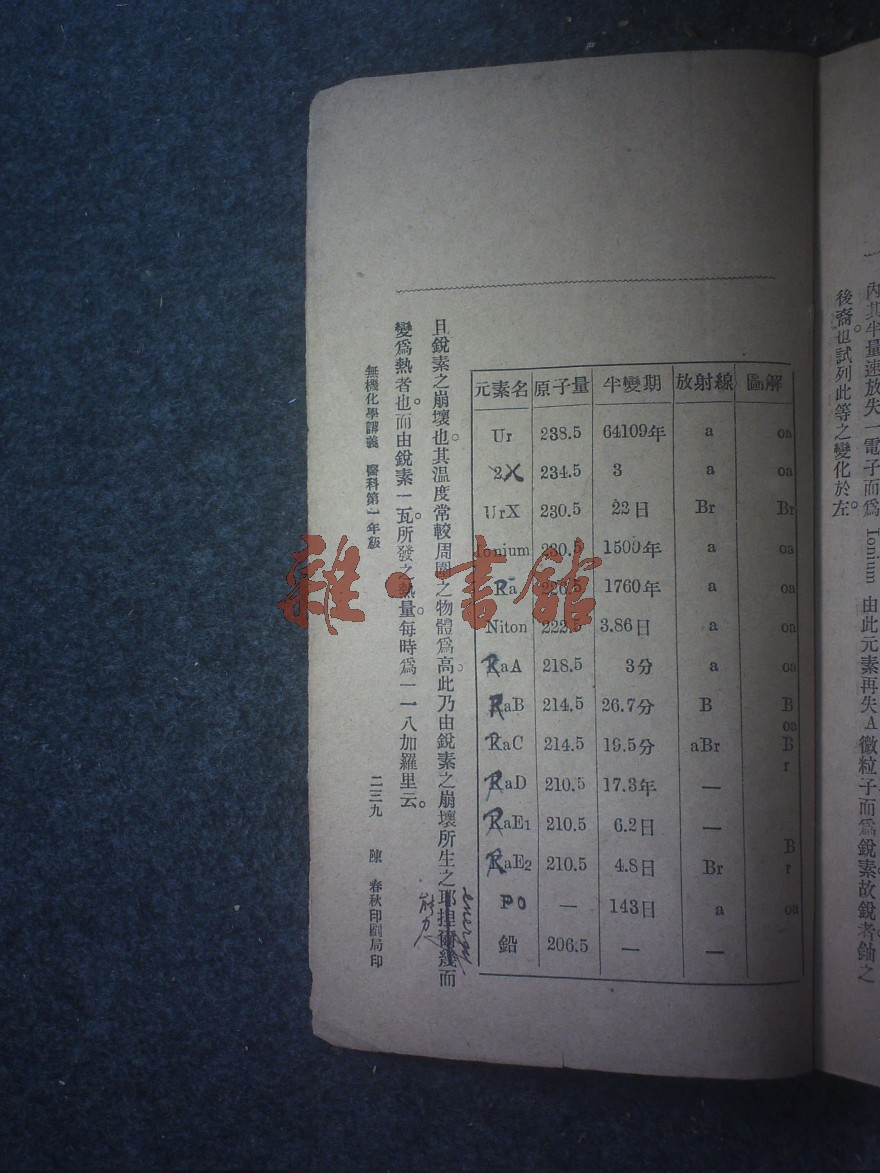 內其半量速放失一電子而爲 Ionium 由此元素再失A微粒子而爲銳素。故銳者鈾之
後裔也。試列此等之變化於左。
元素名 原子量 半變期 放射線 圖解
Ur 238.5 64109年 a oa
2X 234.5 3 a oa
UrX 230.5 22日 Br Br
Jonium 230.5 1500年 a oa
Ra 226.5 1760年 a oa
Niton 222.5 3.86日 a oa
RaA 218.5 3分 a oa
RaB 214.5 26.7分 B B
RaC 214.5 19.5分 aBr oa B r
RaD 210.5 17.3年 —
RaE1 210.5 6.2日 —
RaE2 210.5 4.8日 Br B r
PO — 143日 a oa
鉛 206.5 — —
且銳素之崩壞也。其溫度常較周圍之物體爲高。此乃由銳素之崩壞所生之耶捏爾幾而
energy
能力
變爲熱者也。而由銳素一瓦所發之熱量。每時爲一一八加羅里云。
無機化學講義 醫科第一年級 二三九 陳 春秋印刷局印
雜·書館